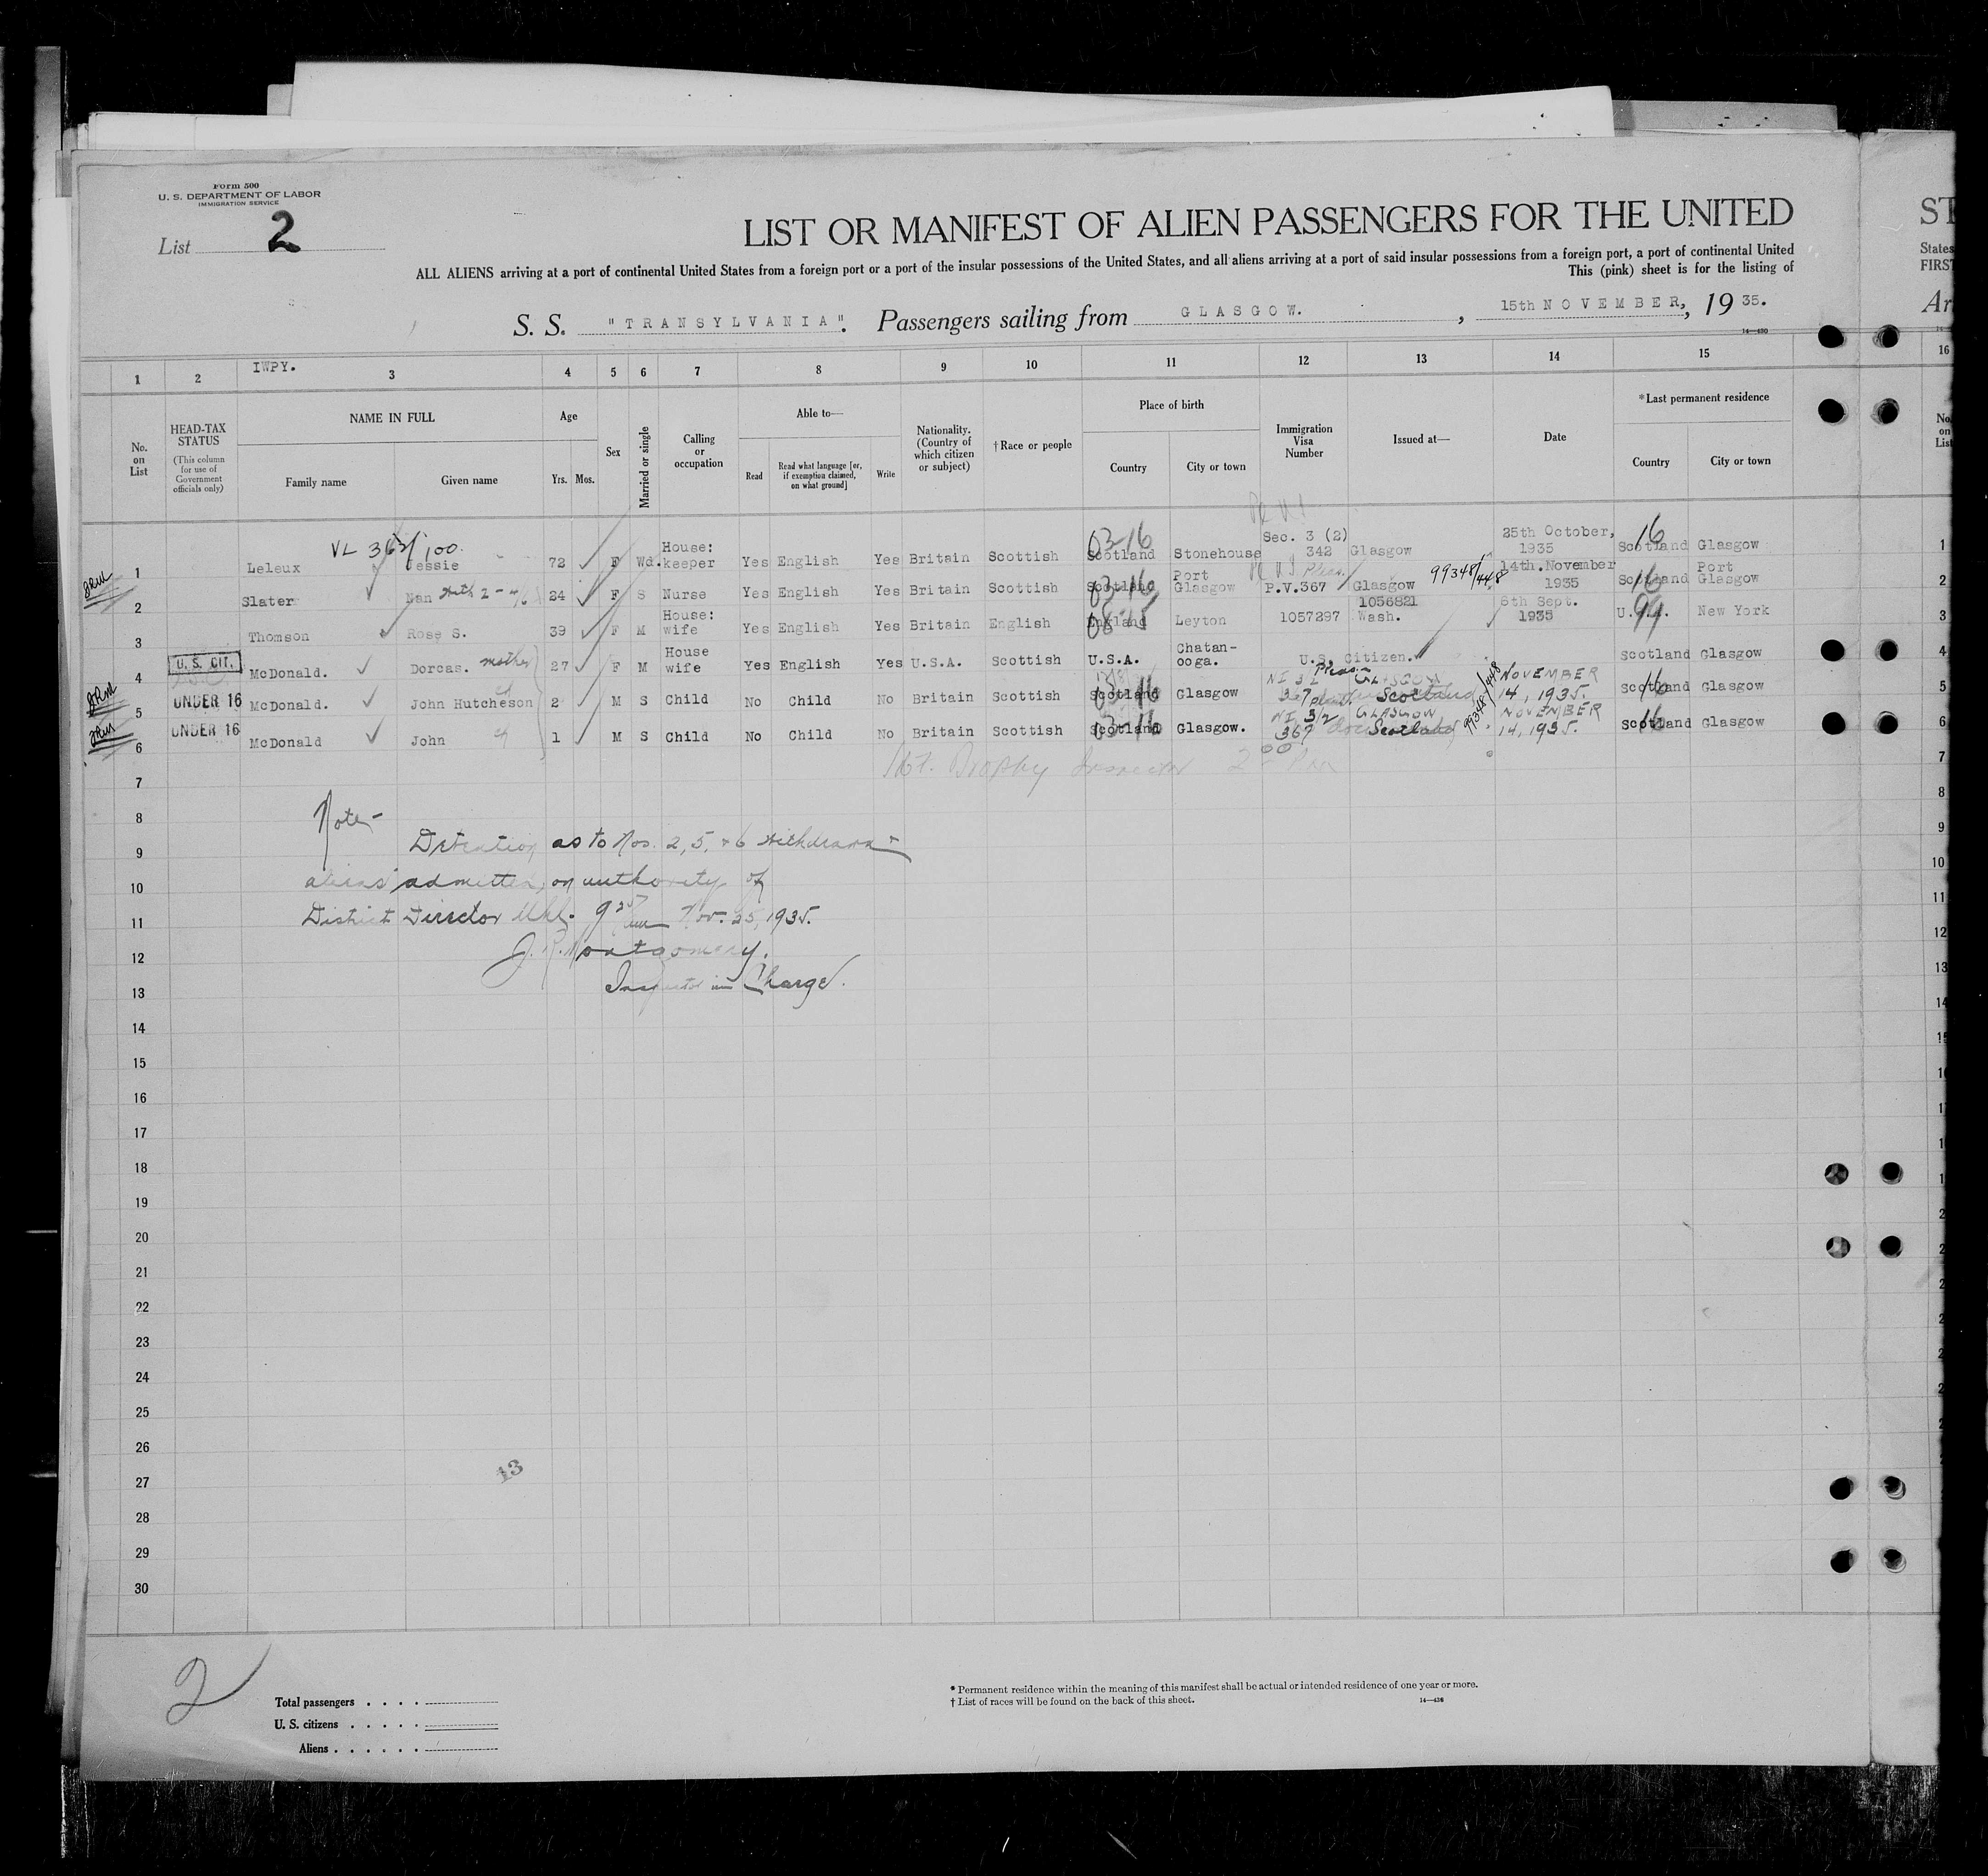 Form 500
U. S. DEPARTMENT OF LABOR
IMMIGRATION SERVICE
List 2
LIST OR MANIFEST OF ALIEN PASSENGERS FOR THE UNITED
ST
ALL ALIENS arriving at a port of continental United States from a foreign port or a port of the insular possessions of the United States, and all aliens arriving at a port of said insular possessions from a foreign port, a port of continental United
States
This (pink) sheet is for the listing of
FIRST
S. S. "TRANSYLVANIA". Passengers sailing from GLASGOW. , 15th NOVEMBER, , 19 35.
Ar
14—430
1 2 IWPY. 3 4 5 6 7 8 9 10 11 12 13 14 15 16
No. on List
HEAD-TAX STATUS
(This column for use of Government officials only)
NAME IN FULL
Family name Given name
Age
Yrs. Mos.
Sex
Married or single
Calling or occupation
Able to—
Read
Read what language [or, if exemption claimed, on what ground]
Write
Nationality. (Country of which citizen or subject)
†Race or people
Place of birth
Country City or town
Immigration Visa Number
Issued at—
Date
*Last permanent residence
Country City or town
No. on List
VL 363/100.
1 Leleux Jessie 72 F Wd. House: keeper Yes English Yes Britain Scottish Scotland 03-16 Stonehouse Sec. 3 (2) 342 Glasgow 25th October, 1935 Scotland 16 Glasgow 1
2 Slater Nan 24 F S Nurse Yes English Yes Britain Scottish Scotland 03-16 Port Glasgow P.V.367 Glasgow 99348/448 14th.November 1935 Scotland 16 Port Glasgow 2
3 Thomson Rose S. 39 F M House: wife Yes English Yes Britain English England Leyton 1057297 1056821 Wash. 6th Sept. 1935 U.S.A. 99 New York 3
4 U. S. CIT. McDonald. Dorcas. mother 27 F M House wife Yes English Yes U.S.A. Scottish U.S.A. Chatan-ooga. U.S. Citizen. Scotland Glasgow 4
5 UNDER 16 McDonald. John Hutcheson 2 M S Child No Child No Britain Scottish Scotland 03-16 Glasgow 367 GLASGOW Scotland 99348/448 NOVEMBER 14, 1935. Scotland 16 Glasgow 5
6 UNDER 16 McDonald John 1 M S Child No Child No Britain Scottish Scotland 03-16 Glasgow. NI 3/2 367 GLASGOW Scotland 99348/448 NOVEMBER 14, 1935. Scotland 16 Glasgow 6
7 Brophy Inspector 7
8 Note- 8
9 Detention as to Nos. 2, 5, + 6 withdrawn 9
10 aliens admitted on authority of 10
11 District Director Nov. 25, 1935. 11
12 J. R. Montgomery. 12
13 Inspector in Charge. 13
14 14
15 15
16
17
18
19
20
21
22
23
24
25
26
27
28
29
30
13
2
Total passengers
U. S. citizens
Aliens
* Permanent residence within the meaning of this manifest shall be actual or intended residence of one year or more.
† List of races will be found on the back of this sheet.
14—436